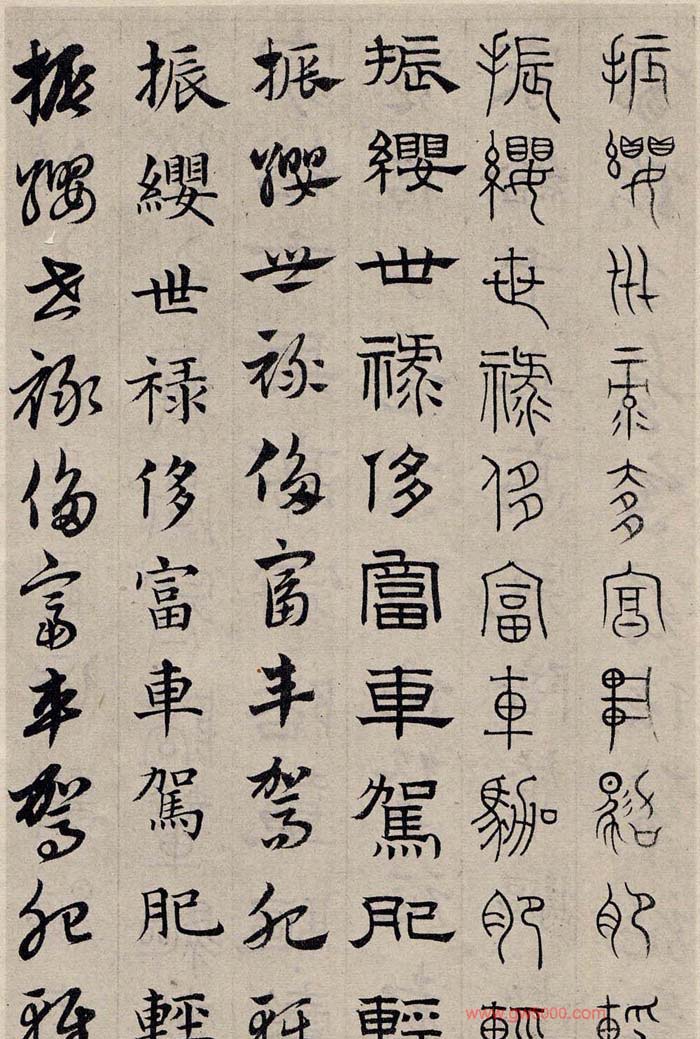 振纓世祿侈富車駕肥輕
振纓世祿侈富車駕肥輕
振纓世祿侈富車駕肥輕
振纓世祿侈富車駕肥輕
振纓世祿侈富車駕肥輕
振纓世祿侈富車駕肥輕
www.gw5000.com